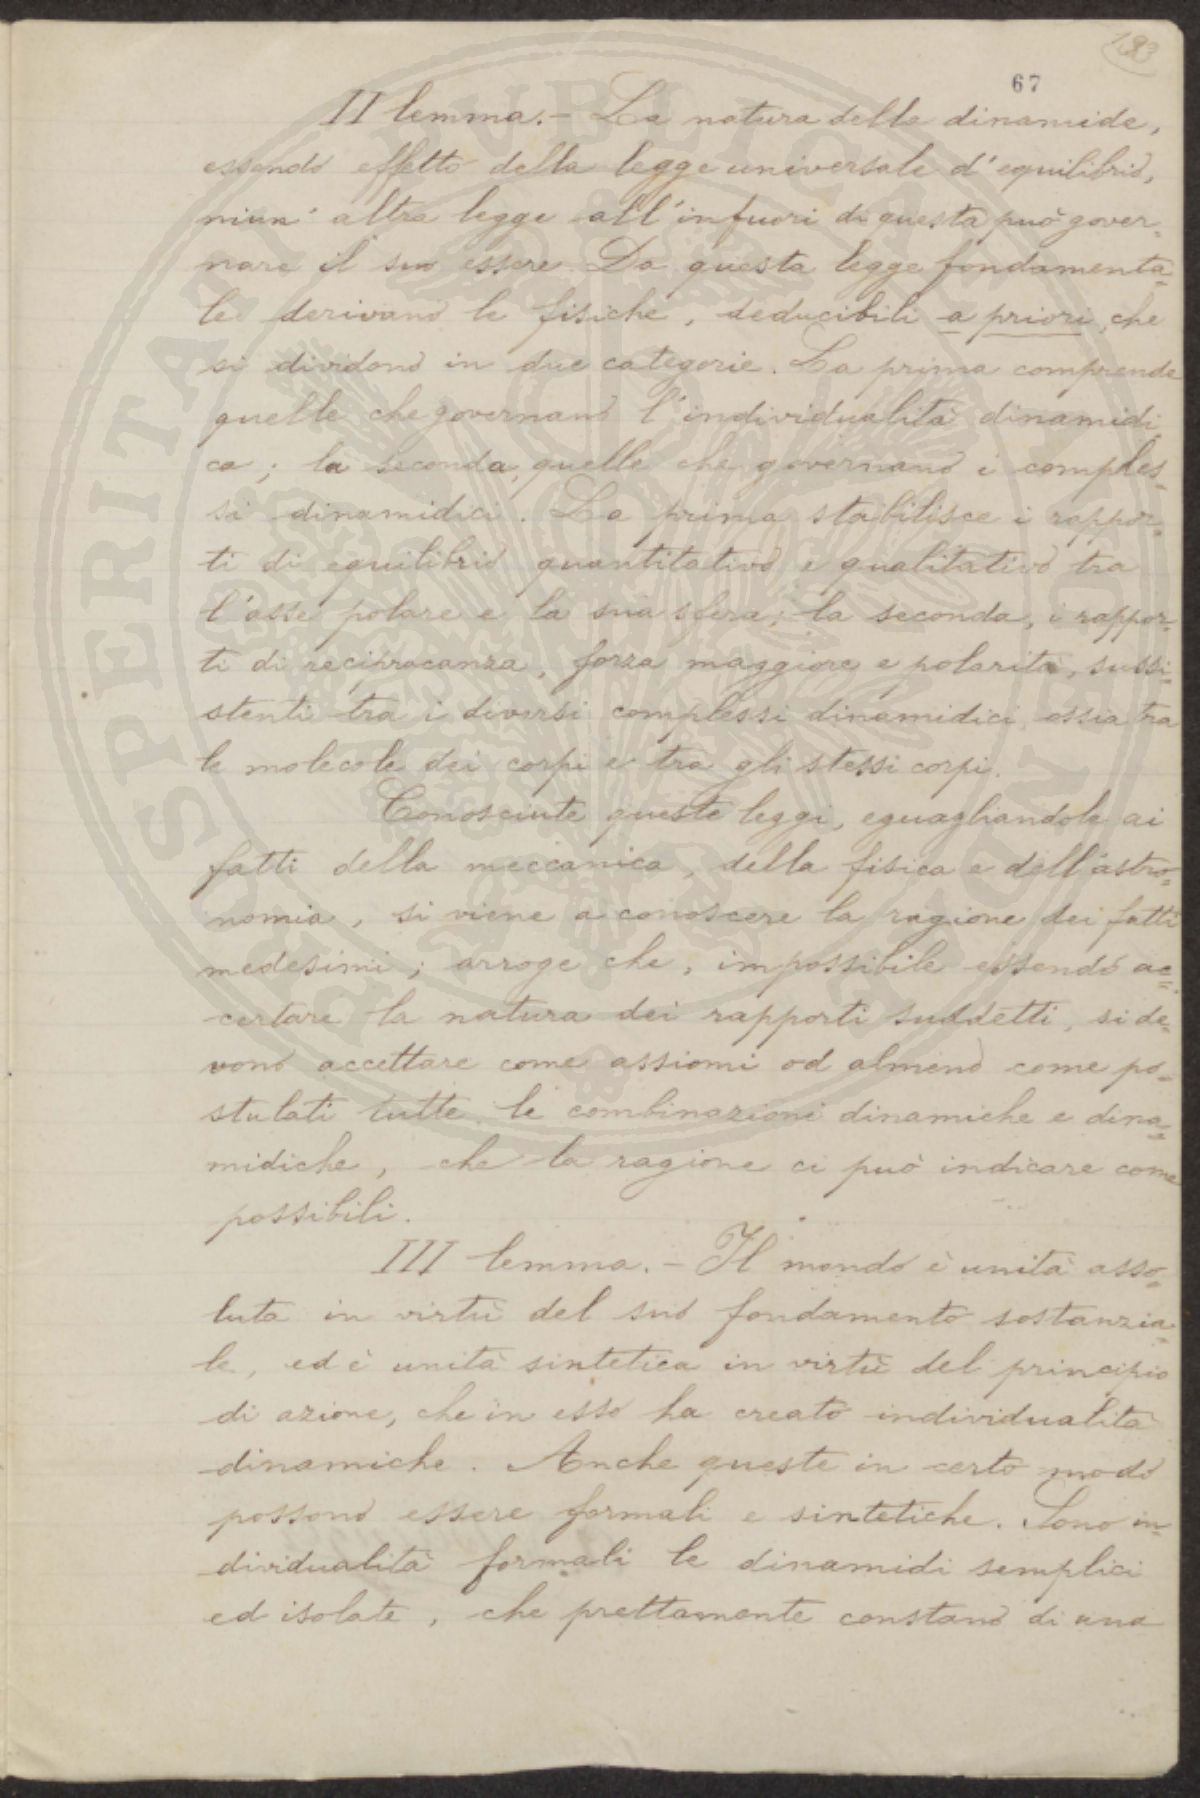 133
67
II lemma. – La natura della dinamide,
essendo effetto della legge universale d'equilibrio,
niun' altra legge all'infuori di questa può gover-
nare il suo essere. Da questa legge fondamenta-
le derivano le fisiche, deducibili a priori, che
si dividono in due categorie. La prima comprende
quelle che governano l'individualità dinamidi
ca; la seconda, quelle che governano i comples-
si dinamidici. La prima stabilisce i rappor-
ti di equilibrio quantitativo e qualitativo tra
l'asse polare e la sua sfera; la seconda, i rappor-
ti di reciprocanza, forza maggiore e polarità, sussi-
stenti tra i diversi complessi dinamidici, ossia tra
le molecole dei corpi e tra gli stessi corpi.
Conosciute queste leggi, eguagliandole ai
fatti della meccanica, della fisica e dell'astro-
nomia, si viene a conoscere la ragione dei fatti
medesimi; arroge che, impossibile essendo ac-
certare la natura dei rapporti suddetti, si de-
vono accettare come assiomi od almeno come po-
stulati tutte le combinazioni dinamiche e dina-
midiche, che la ragione ci può indicare come
possibili.
III lemma. – Il mondo è unità asso-
luta in virtù del suo fondamento sostanzia-
le, ed è unità sintetica in virtù del principio
di azione, che in esso ha creato individualità
dinamiche. Anche queste in certo modo
possono essere formali e sintetiche. Sono in-
dividualità formali le dinamidi semplici
ed isolate, che prettamente constano di una